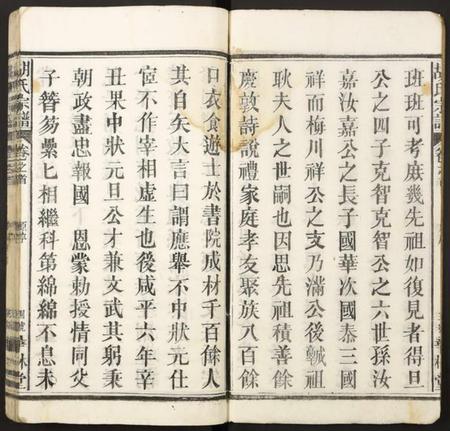 班班可考庶幾先祖如復見者得旦
公之四子克智克智公之六世孫汝
嘉汝嘉公之長子國華次國泰三國
祥而梅川祥公之支乃滿公後諴祖
耿夫人之世嗣也因思先祖積善餘
慶敦詩說禮家庭孝友聚族八百餘
口衣食遊士於書院成材千百餘人
其自矢大言曰謂應舉不中狀元仕
宦不作宰相虛生也後咸平六年辛
丑果中狀元旦公才兼文武其躬秉
朝政盡忠報國 恩蒙勅授情同父
子簪笏纍匕相繼科第綿綿不息未
胡氏宗譜 卷之首
華林堂